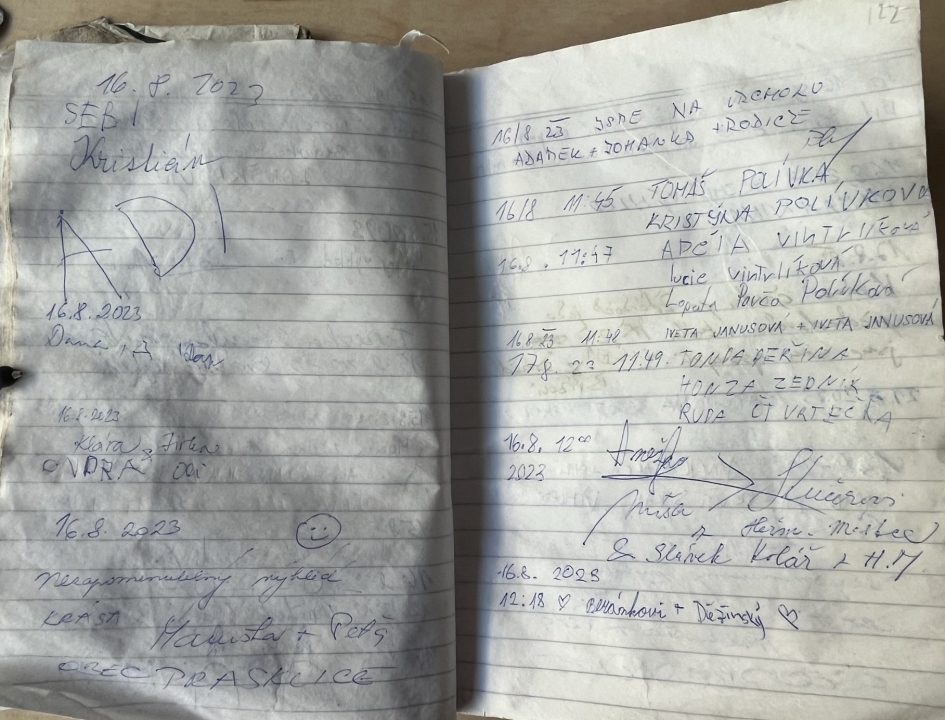 16. 8. 2023
SEBI
Kristián
ADI
16.8.2023
Dana
16.8.2023
Klára & Jirka
ONDRA
16.8.2023
Nezapomenutelný výhled
KRÁSA
Hanička + Petr
OBEC PRASKLICE
122
16/8 23 JSME NA VRCHOLU
ADÁMEK + JOHANKA + RODIČE
16/8 11:45 TOMÁŠ POLÍVKA
KRISTÝNA POLÍVKOVÁ
16.8. 11:47 ADÉLA VINTRLÍKOVÁ
lucie vintrlíková
Polívková
16.8 23 11:48 IVETA JANUSOVÁ + IVETA JANUSOVÁ
17.8 23 11:49 TONDA PEŘINA
HONZA ZEDNÍK
RUDA ČTVRTEČKA
16.8. 12⁰⁰ Anežka Kučerovi
2023
Míša
z Heřm. Městce
& Slávek Kolář z H.M
16.8. 2023
12:18 ♡ + Děžinský ♡